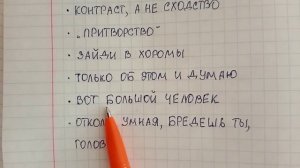 • КОНТРАСТ, А НЕ СХОДСТВО
• „ПРИТВОРСТВО"
• ЗАЙДИ В ХОРОМЫ
• ТОЛЬКО ОБ ЭТОМ И ДУМАЮ
• ВОТ БОЛЬШОЙ ЧЕЛОВЕК
• ОТКОЛ УМНАЯ, БРЕДЕШЬ ТЫ,
ГОЛОВ